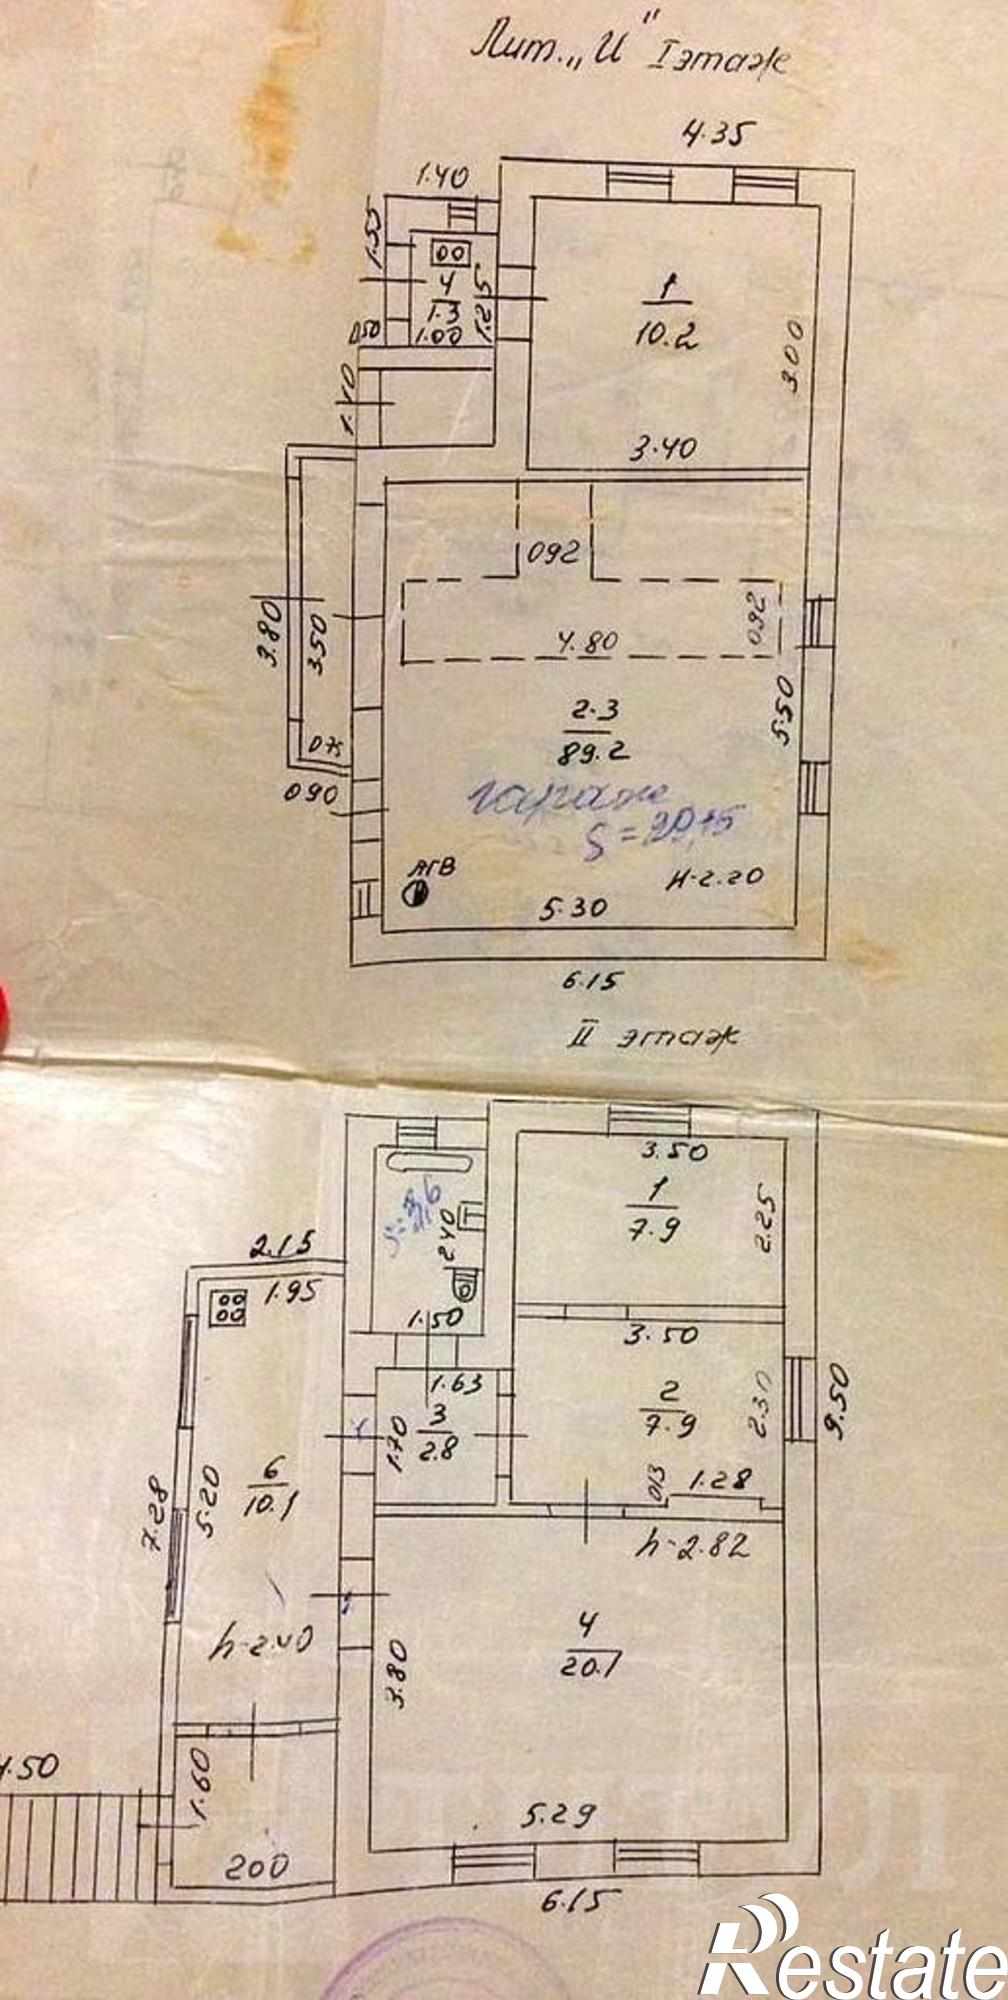 Лит. „И" I этаж
4.35
1.40
1.55
4
1.3
1.25
1.00
0.50
1
10.2
3.00
3.40
1.40
3.80
3.50
0.75
0.90
0.92
4.80
0.92
2.3
89.2
5.50
гараж
АГВ
H-2.20
5.30
6.15
II этаж
3.50
1
7.9
2.25
2.40
1.50
2.15
1.95
3.50
2
7.9
2.30
9.50
1.63
3
2.8
1.70
0.13
1.28
6
10.1
5.20
7.28
h-2.82
h-2.40
4
20.1
3.80
1.60
2.00
5.29
6.15
Restate